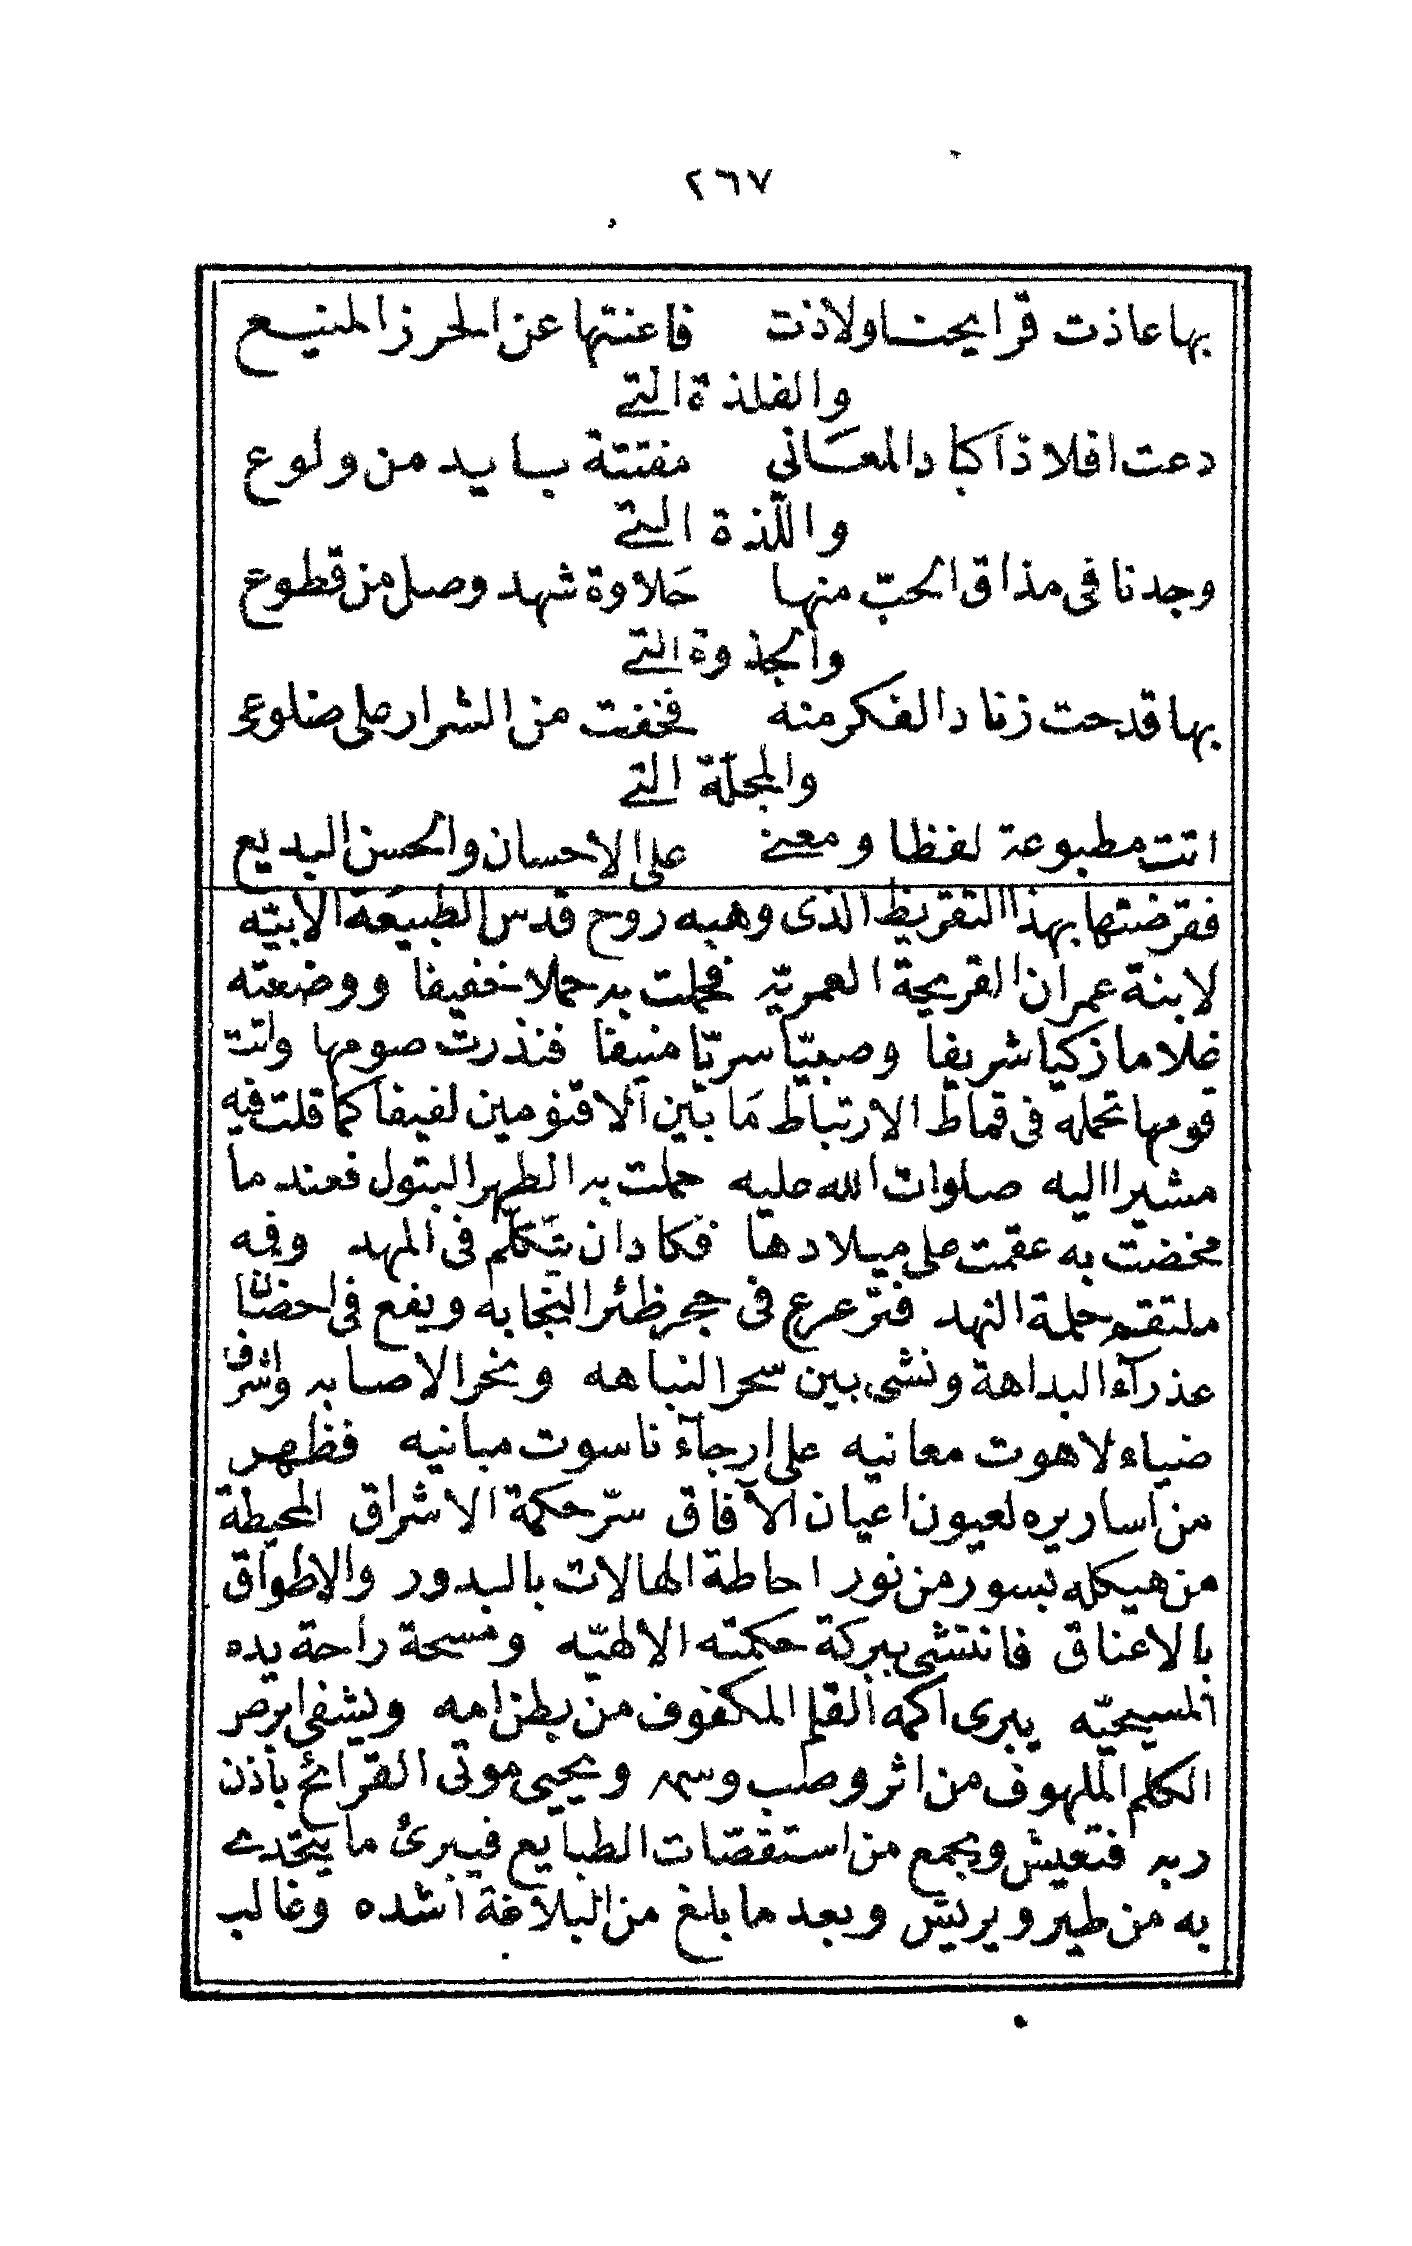 ٢٦٧
بها عاذت قرايحنا ولاذت فاغنتها عن الحرز المنيع
والفلذة التے
دعت افلاذ اكباد المعَاني مفتتة بايد من ولوع
واللّذة التے
وجدنا في مذاق الحبّ منها حَلاوة شهد وصل من قطوع
والجذوة التے
بها قدحت زناد الفكر منه فخفت من الشرار على ضلوعى
والمجلّة التے
اتت مطبوعة لفظا ومعنے على الاحسان والحسن البديع
فقرضتها بهذا التقريظ الذى وهبه روح قدس الطبيعَة الابيّه
لابنة عمران القريحة العمريّه فحملت به حملا خفيفا ووضعته
غلاما زكيا شريفا وصبيّا سريّا منيفا فنذرت صومها واتت
قومها تحمله فى قماط الارتباط مَا بين الاقنومين لفيفا كما قلت فيه
مشيرا اليه صلوات الله عليه حملت به الطهر البتول فعند ما
مخضت به عقمت على ميلادها فكاد ان يتَكلّم فى المهد وفيه
ملتقم حلمة النهد فترعرع فى حجر ظئر النجابه ويفع فى احضان
عذرآء البداهة ونشى بين سحر النباهه ونحر الاصابه واشرف
ضياء لاهوت معانيه على ارجآء ناسوت مبانيه فظهر
من اساريره لعيون اعيان الآفاق سرّ حكمة الاشراق المحيطة
من هيكله بسور من نور احاطة الهالات بالبدور والاطواق
بالاعناق فانتشى ببركة حكمته الالهيّه ومسحة راحة يده
المسيحيّه يبرى اكمه القلم المكفوف من بطن امه ويشفى ابرص
الكلم الملهوف من اثر وصب وسمه ويحيى موتى القرائح باذن
ربه فتعيش ويجمع من استقصّات الطبايع فيبرئ ما يتحّدے
به من طير ويريّش وبعد ما بلغ من البلاغة اشده وغالب